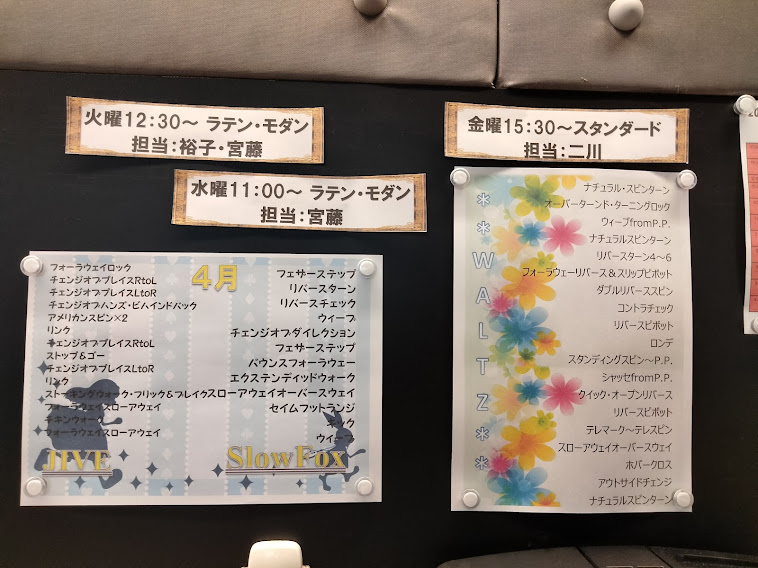 火曜12:30～ ラテン・モダン
担当:裕子・宮藤
水曜11:00～ ラテン・モダン
担当:宮藤
金曜15:30～スタンダード
担当:二川
4月
フォーラウェイロック
チェンジオブプレイスRtoL
チェンジオブプレイスLtoR
チェンジオブハンズ・ビハインドバック
アメリカンスピン×2
リンク
チェンジオブプレイスRtoL
ストップ&ゴー
チェンジオブプレイスLtoR
リンク
ストッキングウォーク・フリック&ブレイク
フォーラウェイスローアウェイ
チキンウォーク
フォーラウェイスローアウェイ
JIVE
フェザーステップ
リバースターン
リバースチェック
ウィーブ
チェンジオブダイレクション
フェザーステップ
バウンスフォーラウェー
エクステンディッドウォーク
スローアウェイオーバースウェイ
セイムフットランジ
ウィーブ
SlowFox
**WALTZ**
ナチュラル・スピンターン
オーバーターンド・ターニングロック
ウィーブfromP.P.
ナチュラルスピンターン
リバースターン4～6
フォーラウェーリバース&スリップピボット
ダブルリバーススピン
コントラチェック
リバースピボット
ロンデ
スタンディングスピン～P.P.
シャッセfromP.P.
クイック・オープンリバース
リバースピボット
テレマーク～テレスピン
スローアウェイオーバースウェイ
ホバークロス
アウトサイドチェンジ
ナチュラルスピンターン